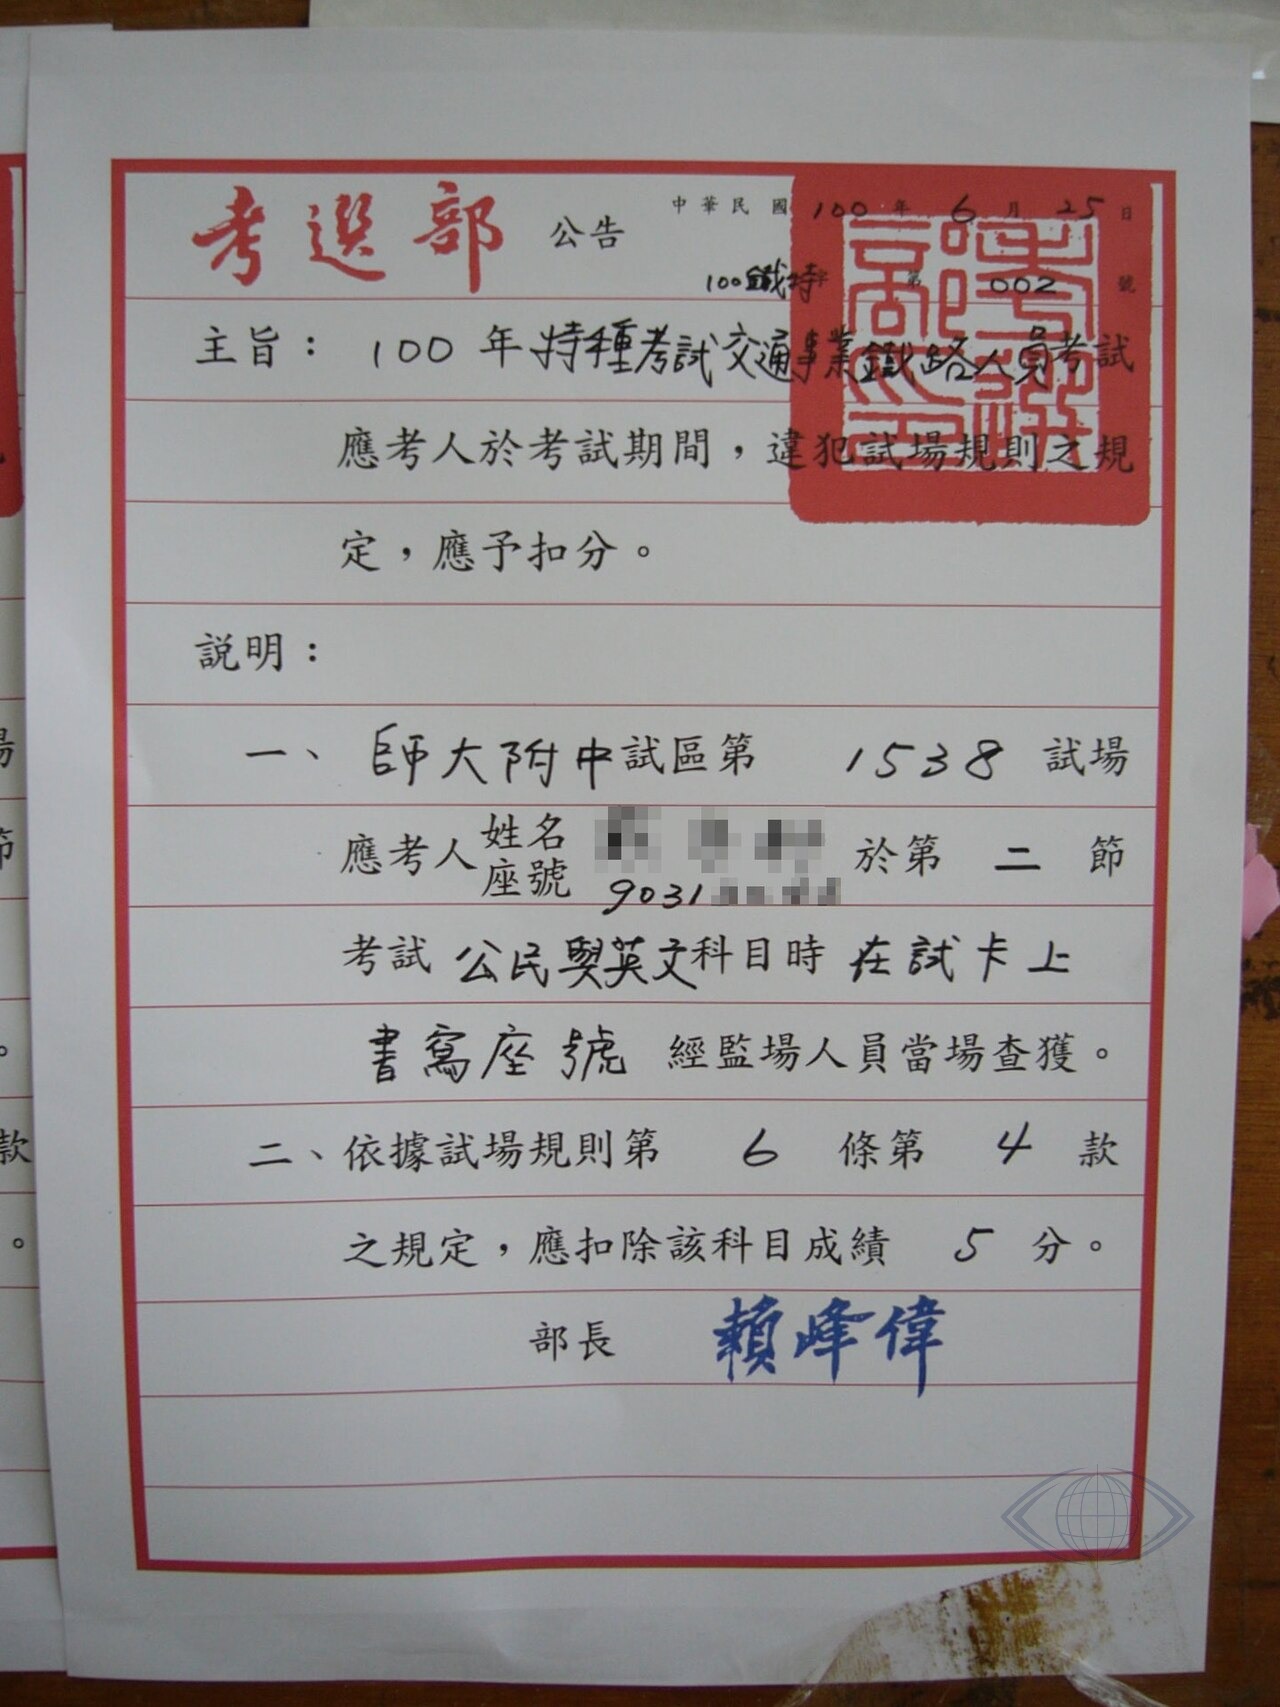 考選部 公告
中華民國 100 年 6 月 25 日
100鐵特字 第 002 號
主旨：100 年特種考試交通事業鐵路人員考試
應考人於考試期間，違犯試場規則之規
定，應予扣分。
說明：
一、師大附中試區第 1538 試場
應考人姓名 於第 二 節
座號 9031
考試 公民與英文科目時 在試卡上
書寫座號 經監場人員當場查獲。
二、依據試場規則第 6 條第 4 款
之規定，應扣除該科目成績 5 分。
部長 賴峰偉
考選部印
場
節
。
款
。